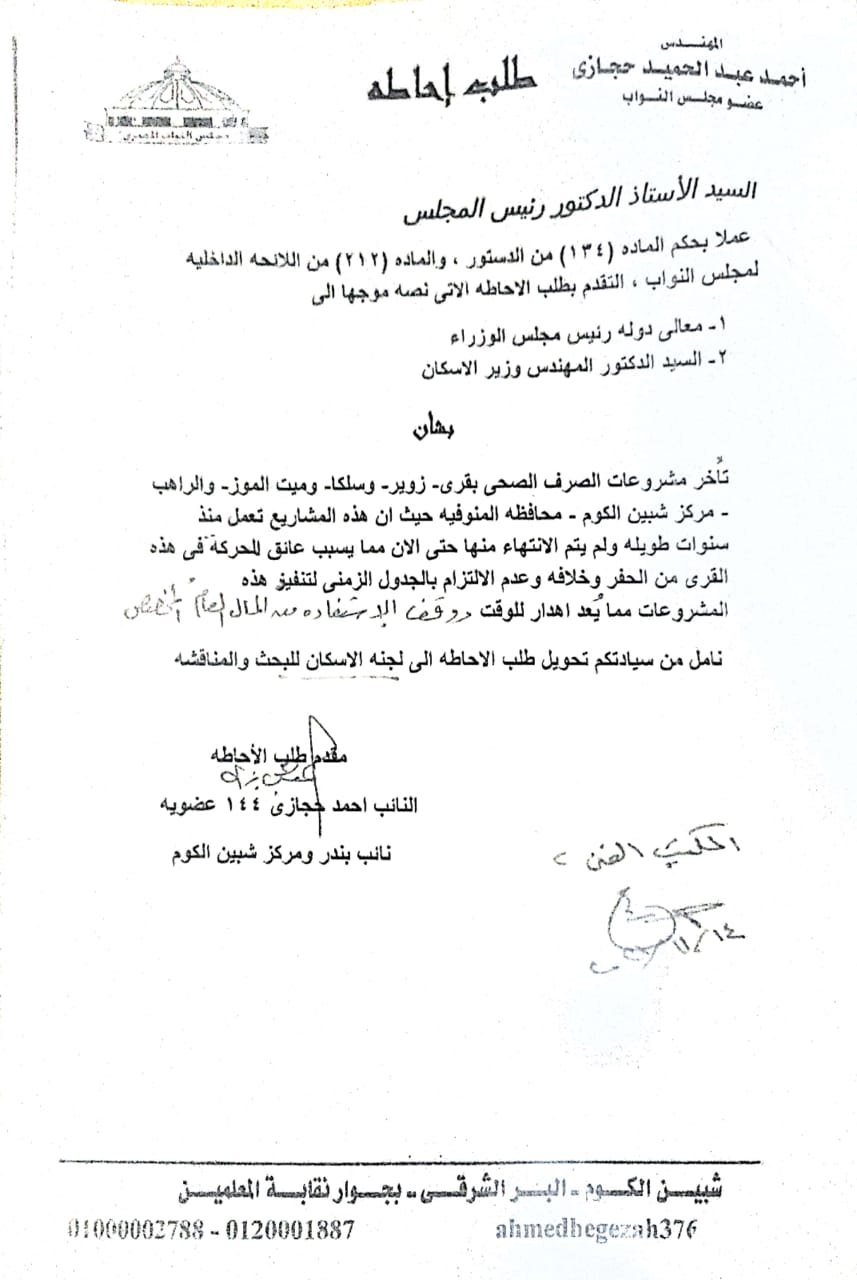 المهندس
أحمد عبد الحميد حجازى
عضو مجلس النواب
طلب إحاطه
مجلس النواب المصرى
السيد الأستاذ الدكتور رئيس المجلس
عملا بحكم الماده (١٣٤) من الدستور ، والماده (٢١٢) من اللائحه الداخليه
لمجلس النواب ، التقدم بطلب الاحاطه الاتى نصه موجها الى
١- معالى دوله رئيس مجلس الوزراء
٢- السيد الدكتور المهندس وزير الاسكان
بشان
تأخر مشروعات الصرف الصحى بقرى- زوير- وسلكا- وميت الموز- والراهب
- مركز شبين الكوم - محافظه المنوفيه حيث ان هذه المشاريع تعمل منذ
سنوات طويله ولم يتم الانتهاء منها حتى الان مما يسبب عائق للحركة فى هذه
القرى من الحفر وخلافه وعدم الالتزام بالجدول الزمنى لتنفيذ هذه
المشروعات مما يُعد اهدار للوقت ووقف الاستفاده من المال العام المخصص
نامل من سيادتكم تحويل طلب الاحاطه الى لجنه الاسكان للبحث والمناقشه
مقدم طلب الأحاطه
النائب احمد حجازى ١٤٤ عضويه
نائب بندر ومركز شبين الكوم
المكتب الفنى
١١/١٤
شبين الكوم - البر الشرقى - بجوار نقابة المعلمين
01000002788 - 0120001887
ahmedhegezah376